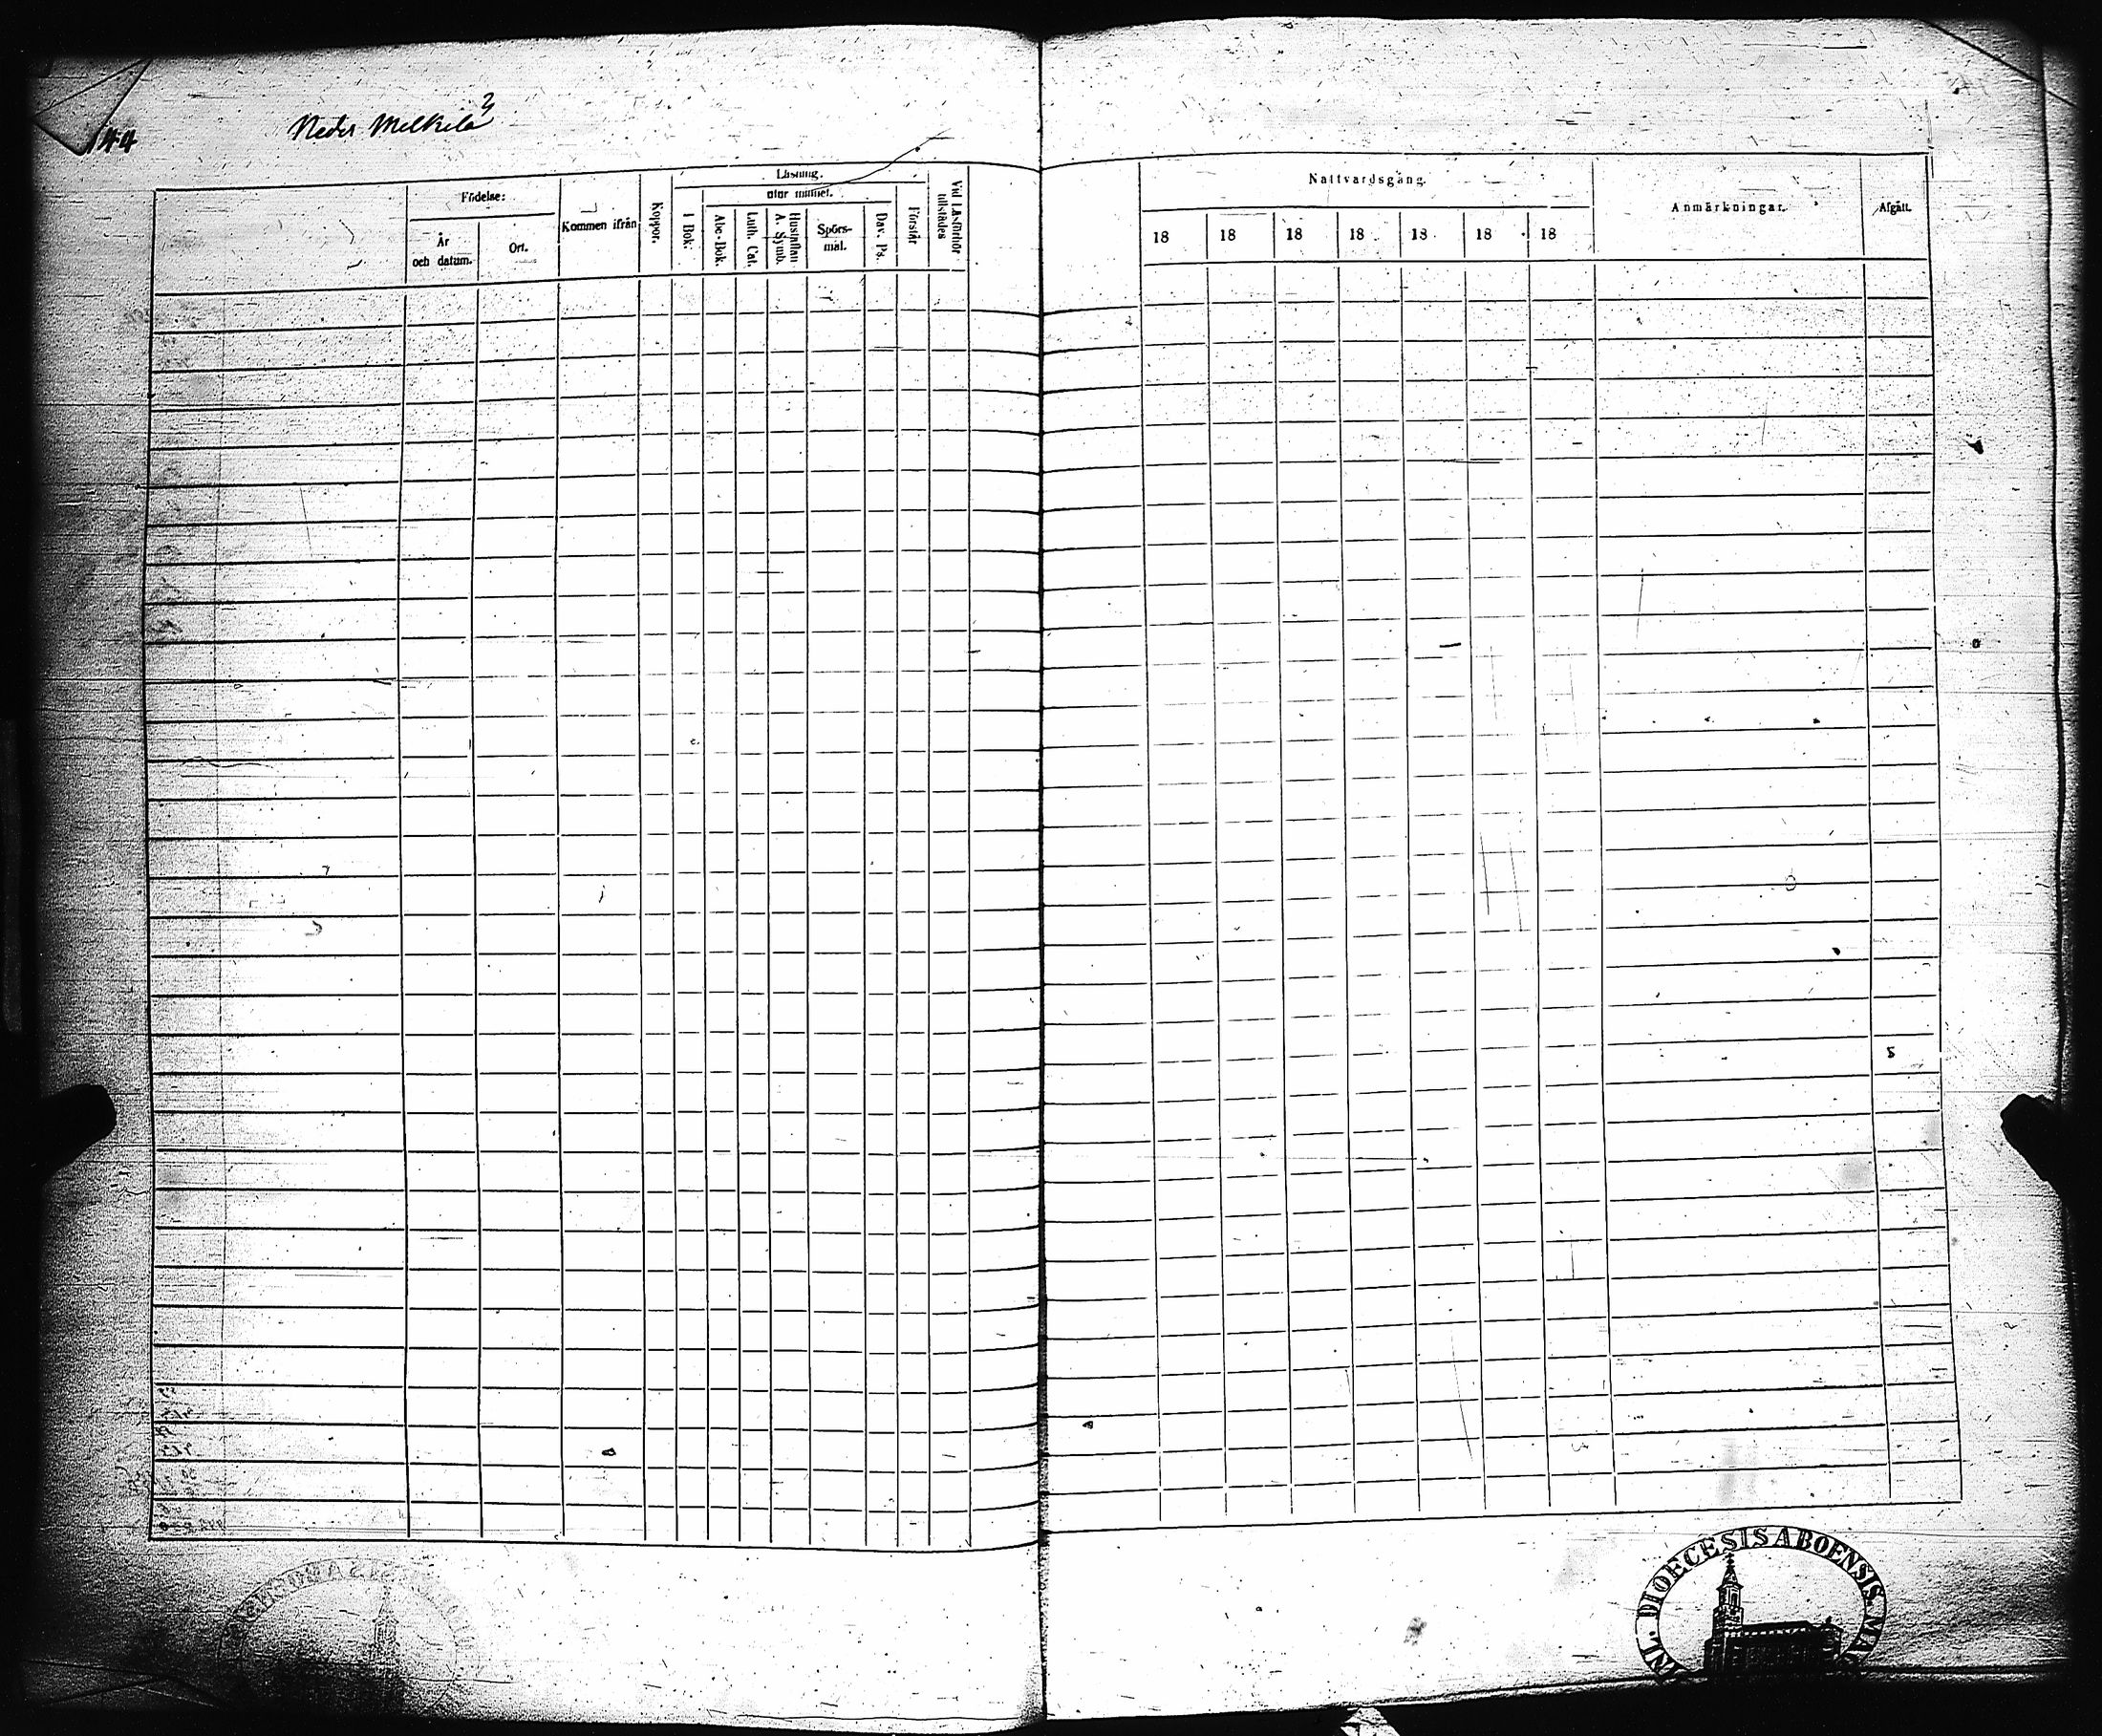 144
Neder Mellkila
2
Födelse:
År
och datum.
Ort.
Kommen ifrån
Koppor.
Läsning.
utur minnet.
I Bok.
Abc-Bok.
Luth. Cat.
Hustaflan
A. Symb.
Spörs-
mål.
Dav. Ps.
Förstår
Vid Läsförhör
tillstädes
Nattvardsgång.
18 18 18 18 18 18 18
Anmärkningar.
Afgått.
DIOECESIS ABOENSIS